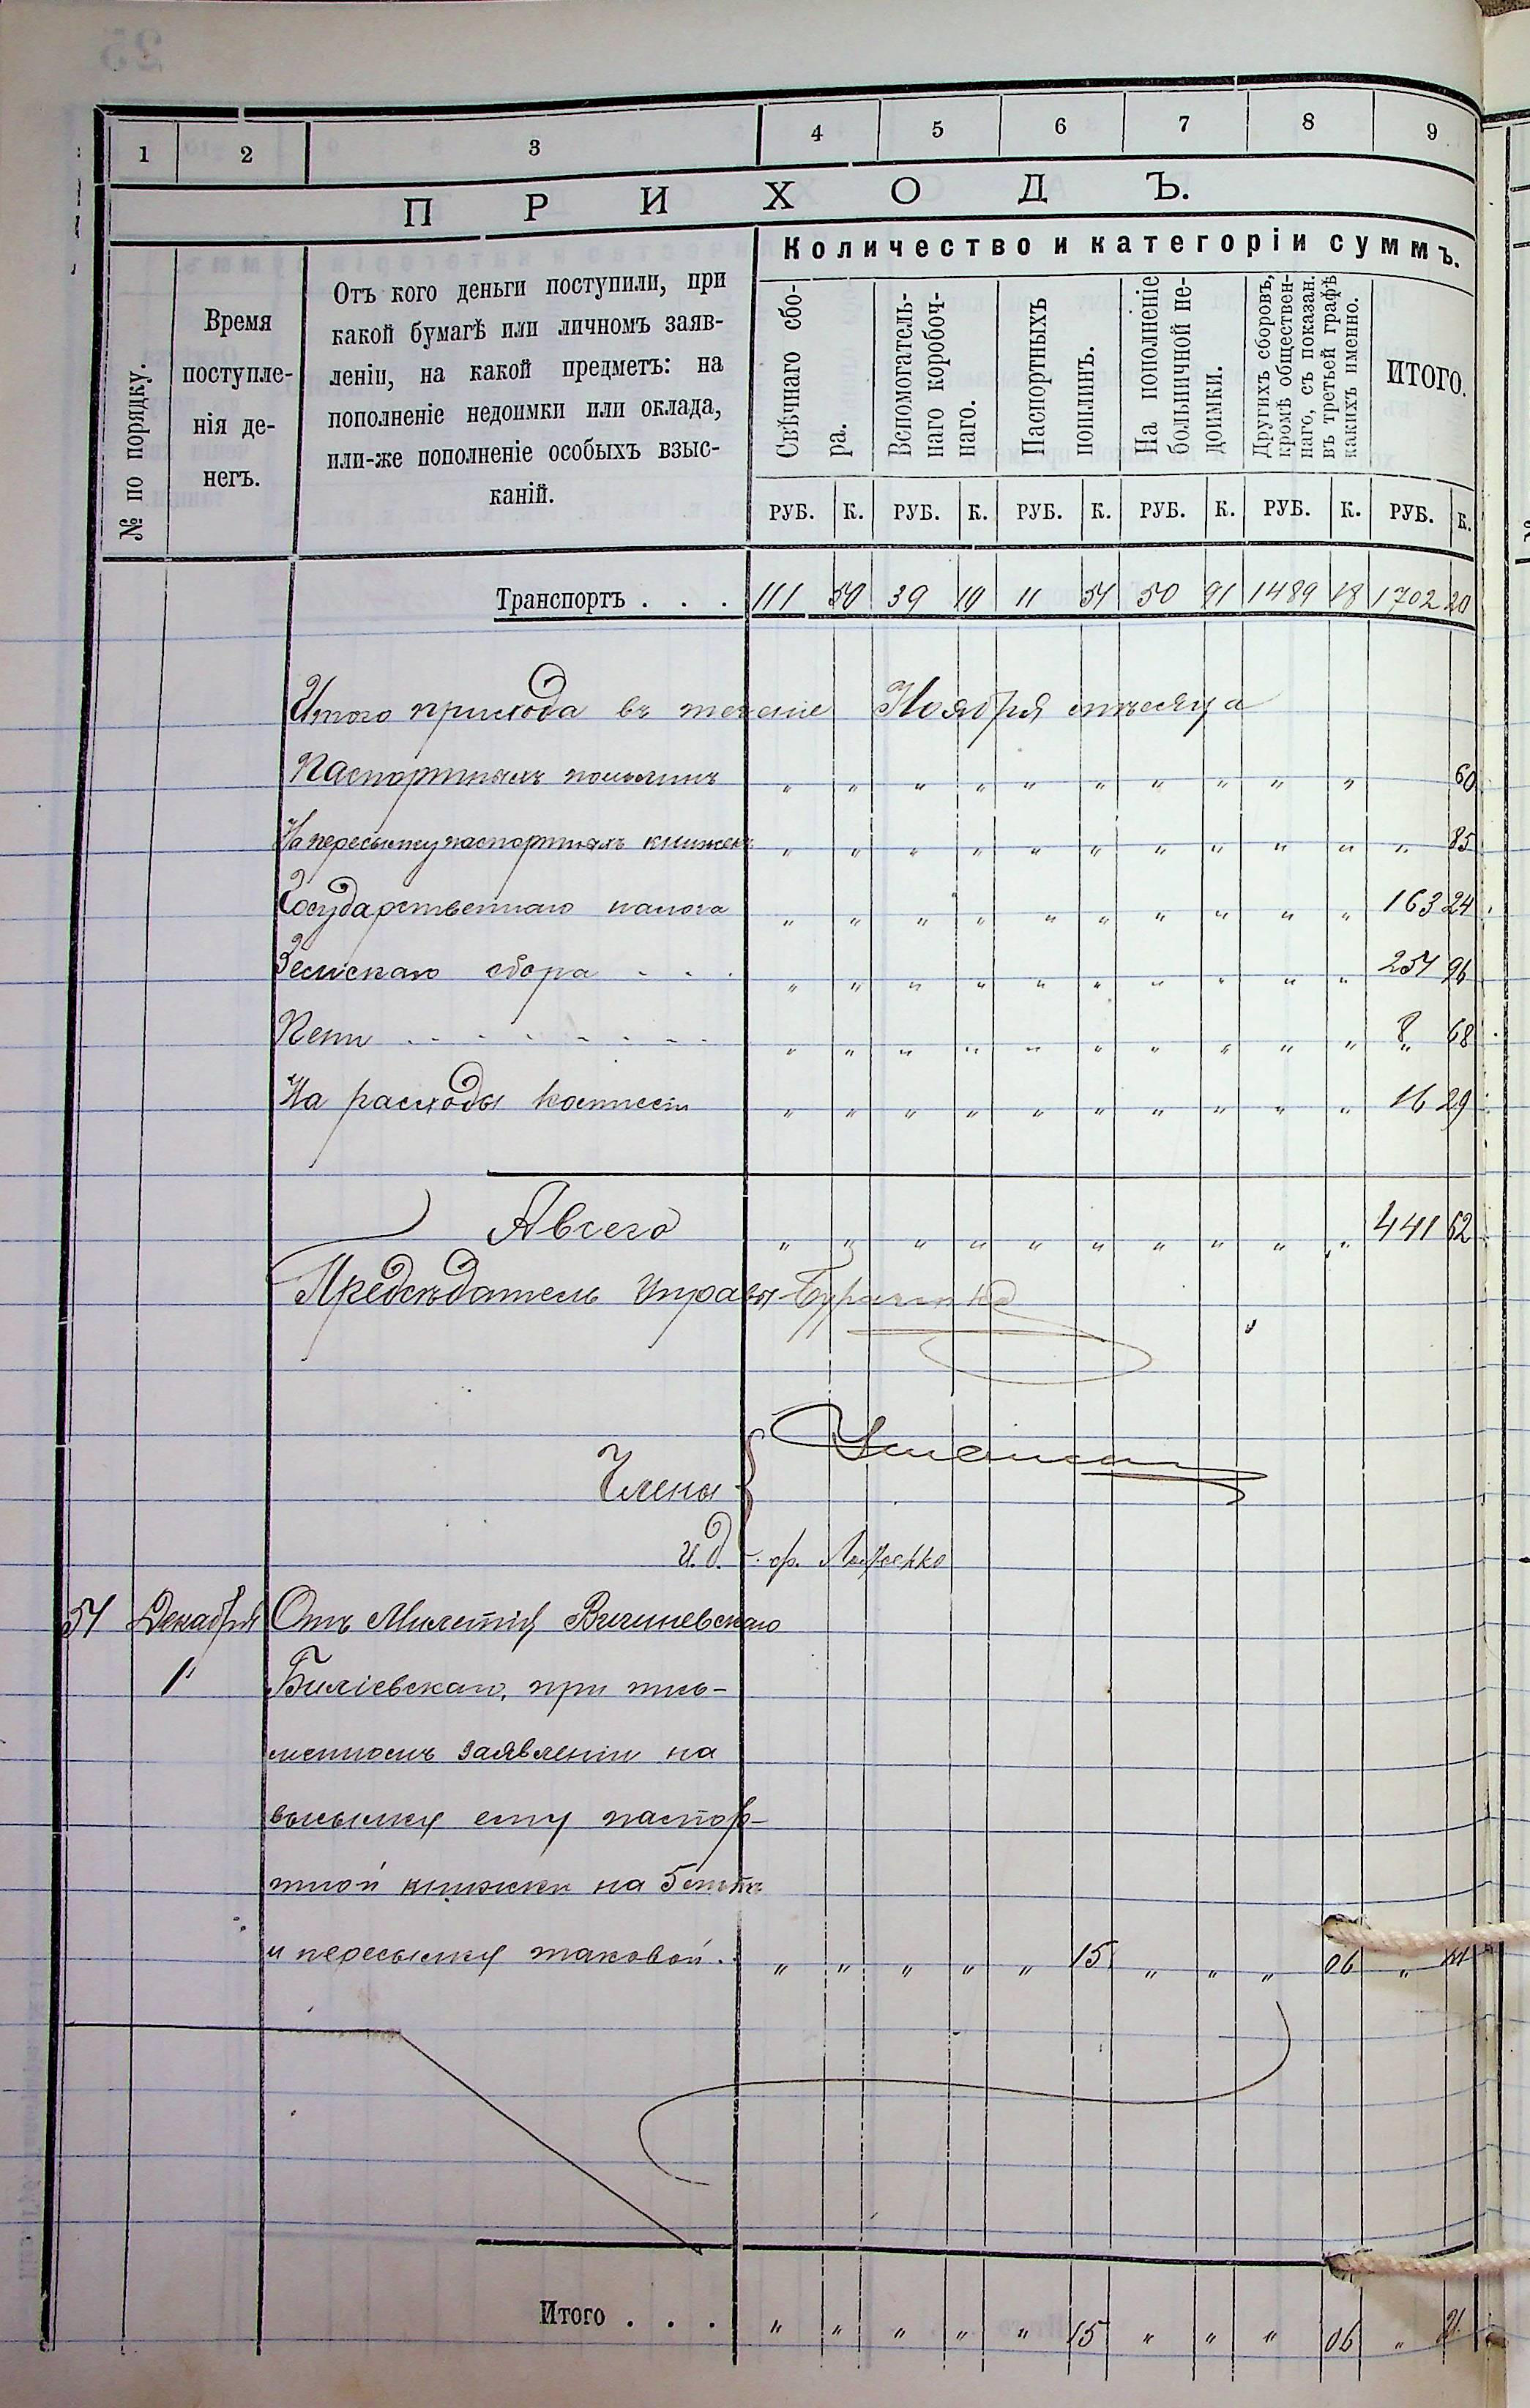 1 2 3 4 5 6 7 8 9
ПРИХОДЪ.
№ по порядку.
Время
поступле-
нія де-
негъ.
Отъ кого деньги поступили, при
какой бумагѣ или личномъ заяв-
леніи, на какой предметъ: на
пополненіе недоимки или оклада,
или-же пополненіе особыхъ взыс-
каній.
Количество и категоріи суммъ.
Свѣчнаго сбо-
ра.
Вспомогатель-
наго коробоч-
наго.
Паспортныхъ
пошлинъ.
На пополненіе
больничной не-
доимки.
Другихъ сборовъ,
кромѣ обществен-
наго, съ показан.
въ третьей графѣ
какихъ именно.
ИТОГО.
РУБ. К. РУБ. К. РУБ. К. РУБ. К. РУБ. К. РУБ. К.
Транспортъ . . . 111 50 39 10 11 51 50 91 1489 18 1702 20
Итого прихода въ теченіе Ноября мѣсяца
Паспортныхъ пошлинъ " " " " " " " " " " 60
На пересылку паспортныхъ книжекъ " " " " " " " " " " " 85
Государственнаго налога " " " " " " " " " " 163 24
Земскаго сбора . . . " " " " " " " " " " 251 96
Пени . . . . . . . . " " " " " " " " " " 8 68
На расходы " " " " " " " " " " 16 29
А всего " " " " " " " " " " 441 62
Предсѣдатель Управы
Члены
и. д.
51 Декабря Отъ
1 при пись-
менномъ заявленіи на
высылку ему паспор-
тной книжки на 5 лѣтъ
и пересылку таковой . . " " " " " 15 " " " 06 " 21
Итого . . . " " " " " 15 " " " 06 " 21